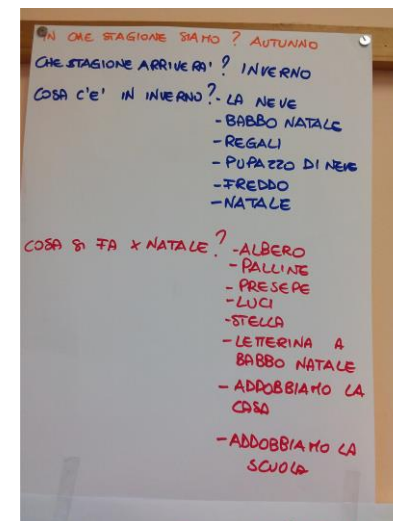 IN CHE STAGIONE SIAMO? AUTUNNO
CHE STAGIONE ARRIVERA'? INVERNO
COSA C'E' IN INVERNO? - LA NEVE
- BABBO NATALE
- REGALI
- PUPAZZO DI NEVE
- FREDDO
- NATALE
COSA SI FA X NATALE? - ALBERO
- PALLINE
- PRESEPE
- LUCI
- STELLA
- LETTERINA A
BABBO NATALE
- ADDOBBIAMO LA
CASA
- ADDOBBIAMO LA
SCUOLA